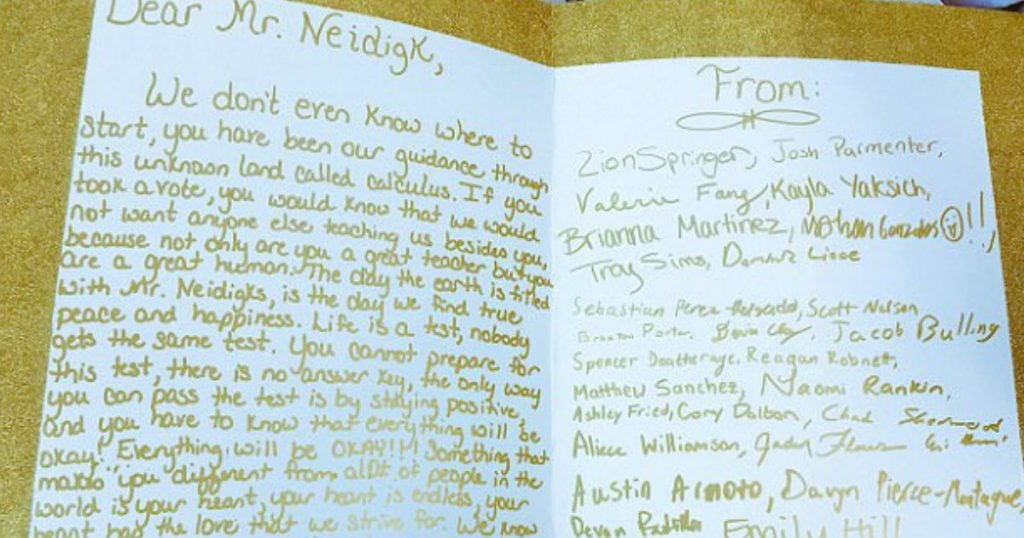 Dear Mr. Neidigk,
We don't even know where to
start, you have been our guidance through
this unknown land called calculus. If you
took a vote, you would know that we would
not want anyone else teaching us besides you,
because not only are you a great teacher but you
are a great human. The day the earth is filled
with Mr. Neidigks, is the day we find true
peace and happiness. Life is a test, nobody
gets the same test. You cannot prepare for
this test, there is no answer key, the only way
you can pass the test is by staying positive,
and you have to know that everything will be
okay! Everything will be OKAY!!! Something that
makes you different from alot of people in the
world is your heart, your heart is endless, your
heart has the love that we strive for. We know
From:
Zion Springer, Josh Parmenter,
Valerie Fang, Kayla Yaksich,
Brianna Martinez, Nathan Gonzales !!,
Troy Sims,
Sebastian Perez, Scott Nelson,
Porter, Jacob Bulling
Spencer Deatherage, Reagan Robnett,
Matthew Sanchez, Naomi Rankin,
Ashley Fried, Cory Dalton, Chad Sherwood
Williamson,
Austin Armoto, Davyn Pierce-Montague,
Devan Padilla Emily Hill